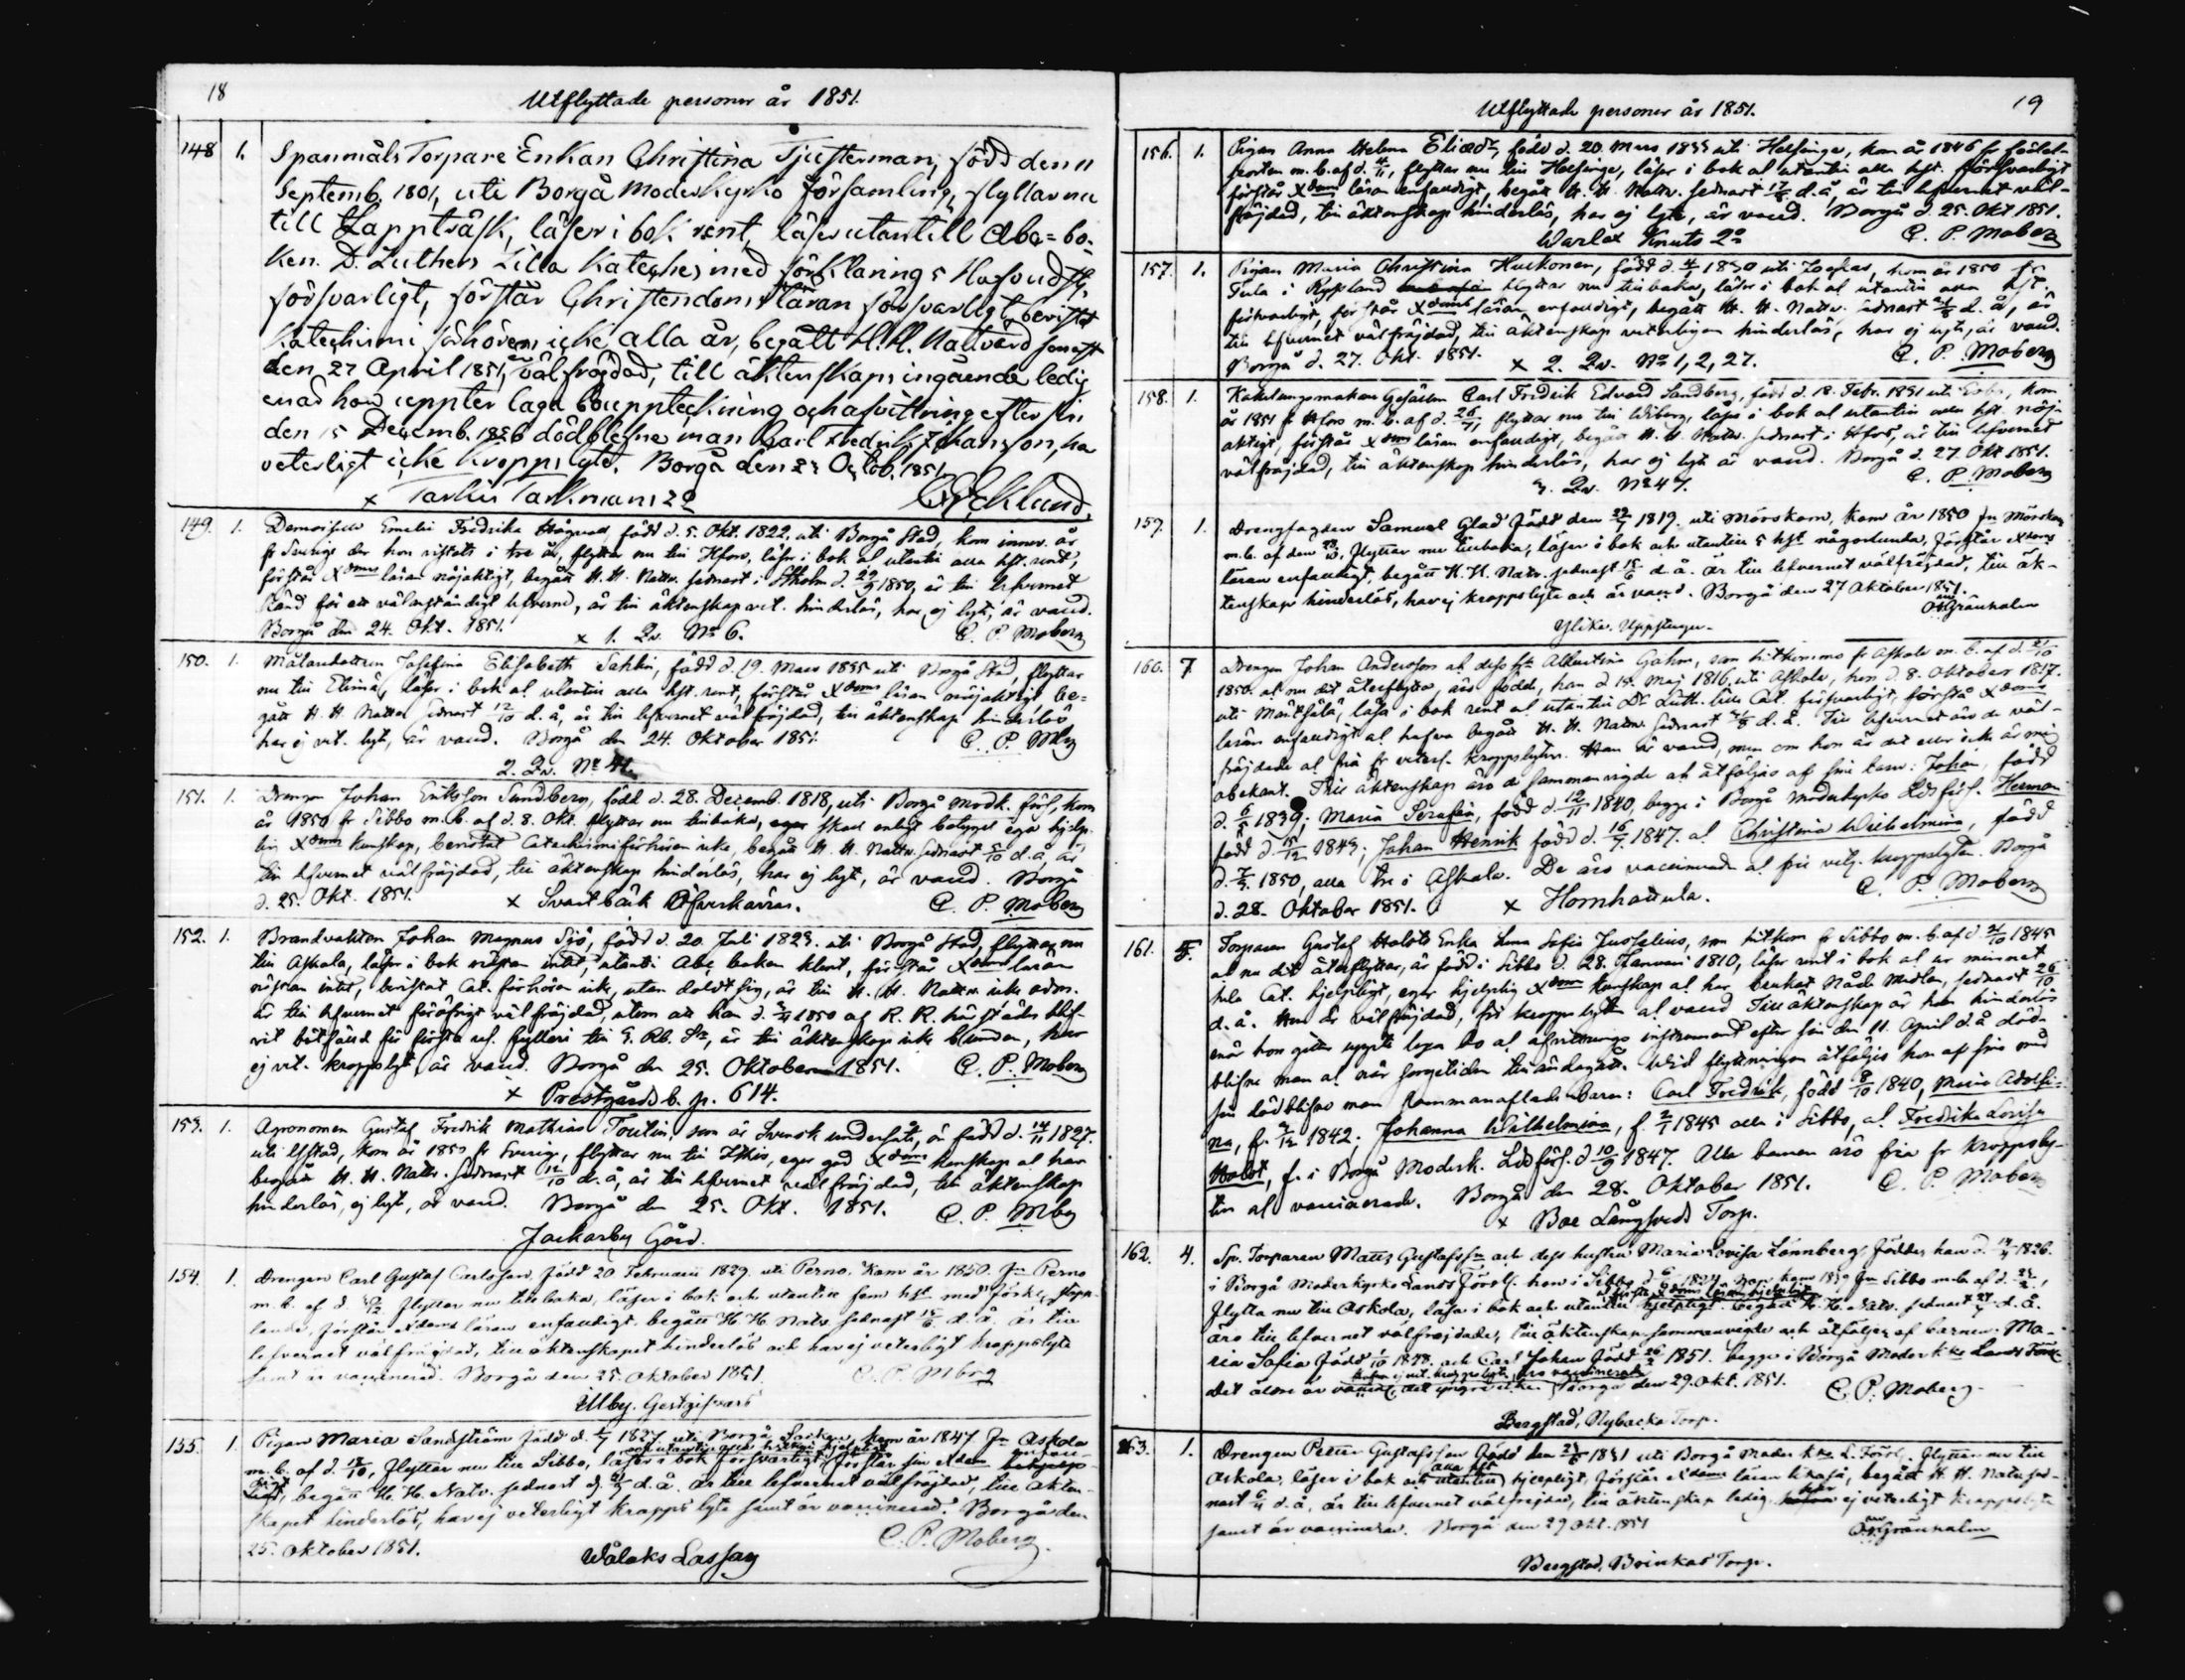 18
Utflyttade personer år 1851.
148 1. Spanmåls Torpare Enkan Christina Tjusterman, född den 11
Septemb. 1801, uti Borgå Moderkyrko församling, flyttar nu
till Lappträsk, läser i bok rent, läser utantill Abc=bo-
ken. D. Luthers Lilla Kateches med förklarings Hufvudst.
försvarligt, förstår Christendoms läran försvarligt, bevistat
Katechismi förhören icke alla år, begått H. H. Nattvard senast
den 27 April 1851, är välfrägdad, till äktenskaps ingående ledig
enär hon uppter laga bouppteckning och afvittring efter sin
den 15 Decemb. 1836 dödblefne man Carl Fredrik Johansson, har
veterligt icke kroppslyte. Borgå den 23 Octob. 1851.
x Tarkis Tarkmans 2
Eklund.
149. 1. Demoiselle Emelie Fredrika född d. 5. Okt. 1822, uti Borgå Stad, kom år
fr Sverige der hon vistats i tre år, flyttar nu till Hfors, läser i bok o utantill alla hst. rent,
förstår Xdoms läran nöjaktigt, begått H. H. Nattv. sednast i Stholm d. 29/9 1850, är till lefvernet
känd för ett välanständigt lefverne, är till äktenskap vet. hinderlös, har ej lyte, är vacc.
Borgå den 24. Okt. 1851. x 1. Qv. No 6. C. P. Moberg
150. 1. Målaredottren Josefina Elisabeth Sahlin, född d. 19. Mars 1835 uti Borgå Stad, flyttar
nu till Elimä, läser i bok o utantill alla hst. rent, förstår Xdoms läran nöjaktigt, be-
gått H. H. Nattv. sednast 12/10 d. å, är till lefvernet välfräjdad, till äktenskap hinderlös
har ej vet. lyte, är vacc. Borgå den 24. Oktober 1851. C. P. Mbg
2. Qv. No 41.
151. 1. Drengen Johan Eriksson Sundberg, född d. 28. Decemb. 1818, uti Borgå modk. förs, kom
år 1850 fr Sibbo m. b. af d. 8. Okt. flyttar nu tillbaka, eger skall enligt betyget ega hjelp-
lig Xdoms kunskap, bevistat Catechismiförhören icke, begått H. H. Nattv. sednast 5/10 d. å, är
till lefvernet välfräjdad, till äktenskap hinderlös, har ej lyte, är vacc. Borgå
d. 25. Okt. 1851. x Svartbäck Öfverkärr. C. P. Moberg
152. 1. Brandvakten Johan Magnus Sjö, född d. 20. Juli 1823. uti Borgå Stad, flyttar nu
till Askola, läser i bok nästan intet, utantill Abc boken klent, förstår Xdoms läran
nästan intet, bevistat Cat. förhören icke, utan doldt sig, är till H. H. Nattv. icke adm.
är till lefvernet föröfrigt välfräjdad, utom att han d. 1850 af R. R. härstädes blif-
vit bötfäld för första fylleri till 5. Rb. Sr, är till äktenskap icke bunden, har
ej vet. kroppslyte, är vacc. Borgå den 25. Oktober 1851. C. P. Moberg
x Prestgårds b. p. 614.
153. 1. Agronomen Gustaf Fredrik Mathias Toutin, som är Svensk undersåte, är född d. 14/11 1827.
uti Ystad, kom år 1850 fr Sverige, flyttar nu till eger god Xdoms kunskap o har
begått H. H. Nattv. sednast 12/10 d. å, är till lefvernet välfräjdad, till äktenskap
hinderlös, ej lyte, är vacc. Borgå den 25. Okt. 1851. C. P. Mbg
Jackarby Gård.
154. 1. Drengen Carl Gustaf Carlsson, född 20 Februarii 1829. uti Perno. Kom år 1850. fn Perno
m. b. af d. flyttar nu tillbaka, läser i bok och utantill fem hst med
förstår Xdoms läran enfaldigt, begått H. H. Natv. sednast 15/6 d. å. är till
lefvernet välfräjdad, till äktenskapet hinderlös och har ej veterligt kroppslyte
samt är vaccinerad. Borgå den 25. Oktober 1851. C. P. Mbrg
Illby. Gestgifvars
155. 1. Pigan Maria Sandström född d. 1827 uti Borgå Socken, kom år 1847 fn Askola
m. b. af d. 19/10, flyttar nu till Sibbo, läser i bok försvarligt förstår sin Xdom
begått H. H. Natv. sednast d. d. å. är till lefvernet välfräjdad, till äkten-
skapet hinderlös, har ej veterligt kropps lyte samt är vaccinerad. Borgå den
25. Oktober 1851. C. P. Moberg.
Wålaks Lassas
Utflyttade personer år 1851.
19
156. 1. Pigan Anna Helena Eliædr, född d. 20. Mars 1833 uti Helsinge, kom år 1846 fr födelse-
orten m. b. af d. 4/11, flyttar nu till Helsinge, läser i bok o utantill alla hst. försvarligt
förstår Xdoms läran enfaldigt, begått H. H. Nattv. sednast d. å, är till lefvernet väl-
fräjdad, till äktenskap hinderlös, har ej lyte, är vacc. Borgå d. 25. Okt 1851.
Warlax Knuts 2 C. P. Moberg
157. 1. Pigan Maria Christina Huckonen, född d. 4/5 1830 uti kom år 1850 fr
Tula i Ryssland flyttar nu tillbaka, läser i bok o utantill alla hst.
försvarligt, förstår Xdoms läran enfaldigt, begått H. H. Nattv. sednast d. å, är
till lefvernet välfräjdad, till äktenskap veterligen hinderlös, har ej lyte, är vacc.
Borgå d. 27. Okt. 1851. x 2. Qv. No 1, 2, 27. C. P. Moberg
158. 1. Kakelugnsmakare Gesällen Carl Fredrik Edvard Sandberg, född d. 18. Febr. 1831 uti kom
år 1851 fr Hfors m. b. af d. 26/7, flyttar nu till Wiborg, läser i bok o utantill alla hst. nöj-
aktigt, förstår Xdoms läran enfaldigt, begått H. H. Nattv. sednast i Hfors, är till lefvernet
välfräjdad, till äktenskap hinderlös, har ej lyte är vacc. Borgå d. 27. Okt 1851.
3. Qv. No 47. C. P. Moberg
159. 1. Drengfogden Samuel Glad född den 22/7 1819. uti Mörskom, kom år 1850 fn Mörskom
m. b. af den flyttar nu tillbaka, läser i bok och utantill 5 hst någorlunda, förstår Xdoms
läran enfaldigt, begått H. H. Natv. sednast 15/6 d. å. är till lefvernet välfräjdad, till äk-
tenskap hinderlös, har ej kroppslyte och är vacc. Borgå den 27 Oktober 1851.
Gränholm
Ylike. Uppstuga.
160. 7 Drengen Johan Andersson o dess hu Albertina Gahm, som hitkommo fr Askola m. b. af d. 21/10
1850. o nu dit återflytta, äro födde, han d 15. Maj 1816. uti Askola, hon d. 8. Oktober 1817.
uti Mäntsälä, läsa i bok rent o utantill Dr Luth. lilla Cat. försvarligt, förstå Xdoms
läran enfaldigt o hafva begått H. H. Nattv. sednast d. å. Till lefvernet äro de väl-
fräjdade o fria fr veterl. kroppslyten. Han är vacc, men om hon är det eller icke är mig
obekant. Till äktenskap äro de sammanvigde och åtföljas af sine barn: Johan, född
d. 1839; Maria Serafia, född d. 12/11 1840, begge i Borgå Moderkyrko Ldsförs. Herman
född d. 15/12 1843; Johan Henrik född d. 16/7 1847. o Christina Wilhelmina, född
d. 7/3. 1850, alla tre i Askola. De äro vaccinerade o fria vetl. kroppslyten. Borgå
d. 28. Oktober 1851. x Hornhattula. C. P. Moberg
161. 5. Torparen Gustaf Holsts Enka Lena Sofia Juselius, som hitkom fr Sibbo m. b. af d 21/10 1845
o nu dit återflyttar, är född i Sibbo d. 28. Januari 1810, läser rent i bok o ur minnet
hela Cat. hjelpligt, eger hjelplig Xdoms kunskap o har brukat Nåde Medlen sednast 26/10
d. å. Hon är välfräjdad, fri kroppslyten o vacc. Till äktenskap är hon hinderlös
enär hon gitter uppte laga bo o afvittrings instrument efter sin den 11. April d. å död-
blifne man o när sorgetiden tilländagått. Wid flyttningen åtföljes hon af sine med
sin dödblifne man sammanaflade barn: Carl Fredrik, född 8/10 1840, Maria Adolfi-
na, f. 1842. Johanna Wilhelmina, f. 2/1 1845 alla i Sibbo, o Fredrika Lovisa
Holst, f. i Borgå Moderk. Ldsförs. d 10/9 1847. Alla barnen äro fria fr kroppsly-
ten o vaccinerade. Borgå den 28. Oktober 1851. C. P. Moberg
x Boe Långsveds Torp.
162. 4. Sp. Torparen Matts Gustafsson och dess hustru Maria Lovisa Lönnberg, födde, han d. 1826.
i Borgå Moderkyrko Lands förs. hon i Sibbo d. 6/6 1827 kom 1850 fn Sibbo m. b. af d.
flytta nu till Askola, läsa i bok och utantill hjelpligt. begått H. H. Natv. sednast d. å.
äro till lefvernet välfräjdade, till äktenskap sammanvigde och åtföljes af barnen: Ma-
ria Sofia född 1/10 1848. och Carl Johan född 26/2 1851. begge i Borgå Moderk:ko Lands Förs.
Det äldre är vaccine. det yngre icke. Borgå den 29. Okt. 1851. C. P. Moberg.
Bergstad, Nybacka Torp.
163. 1. Drengen Petter Gustafsson född den 1831 uti Borgå Moder k:ko L. Förs. flyttar nu till
Askola, läser i bok och utantill alla hst hjelpligt, förstår Xdoms läran likaså, begått H. H. Natv. sed-
nast d. å, är till lefvernet välfräjdad, till äktenskap ledig. har ej veterligt kroppslyte
samt är vaccinerad. Borgå den 29 Okt. 1851 Gränholm
Bergstad, Brinkas Torp.